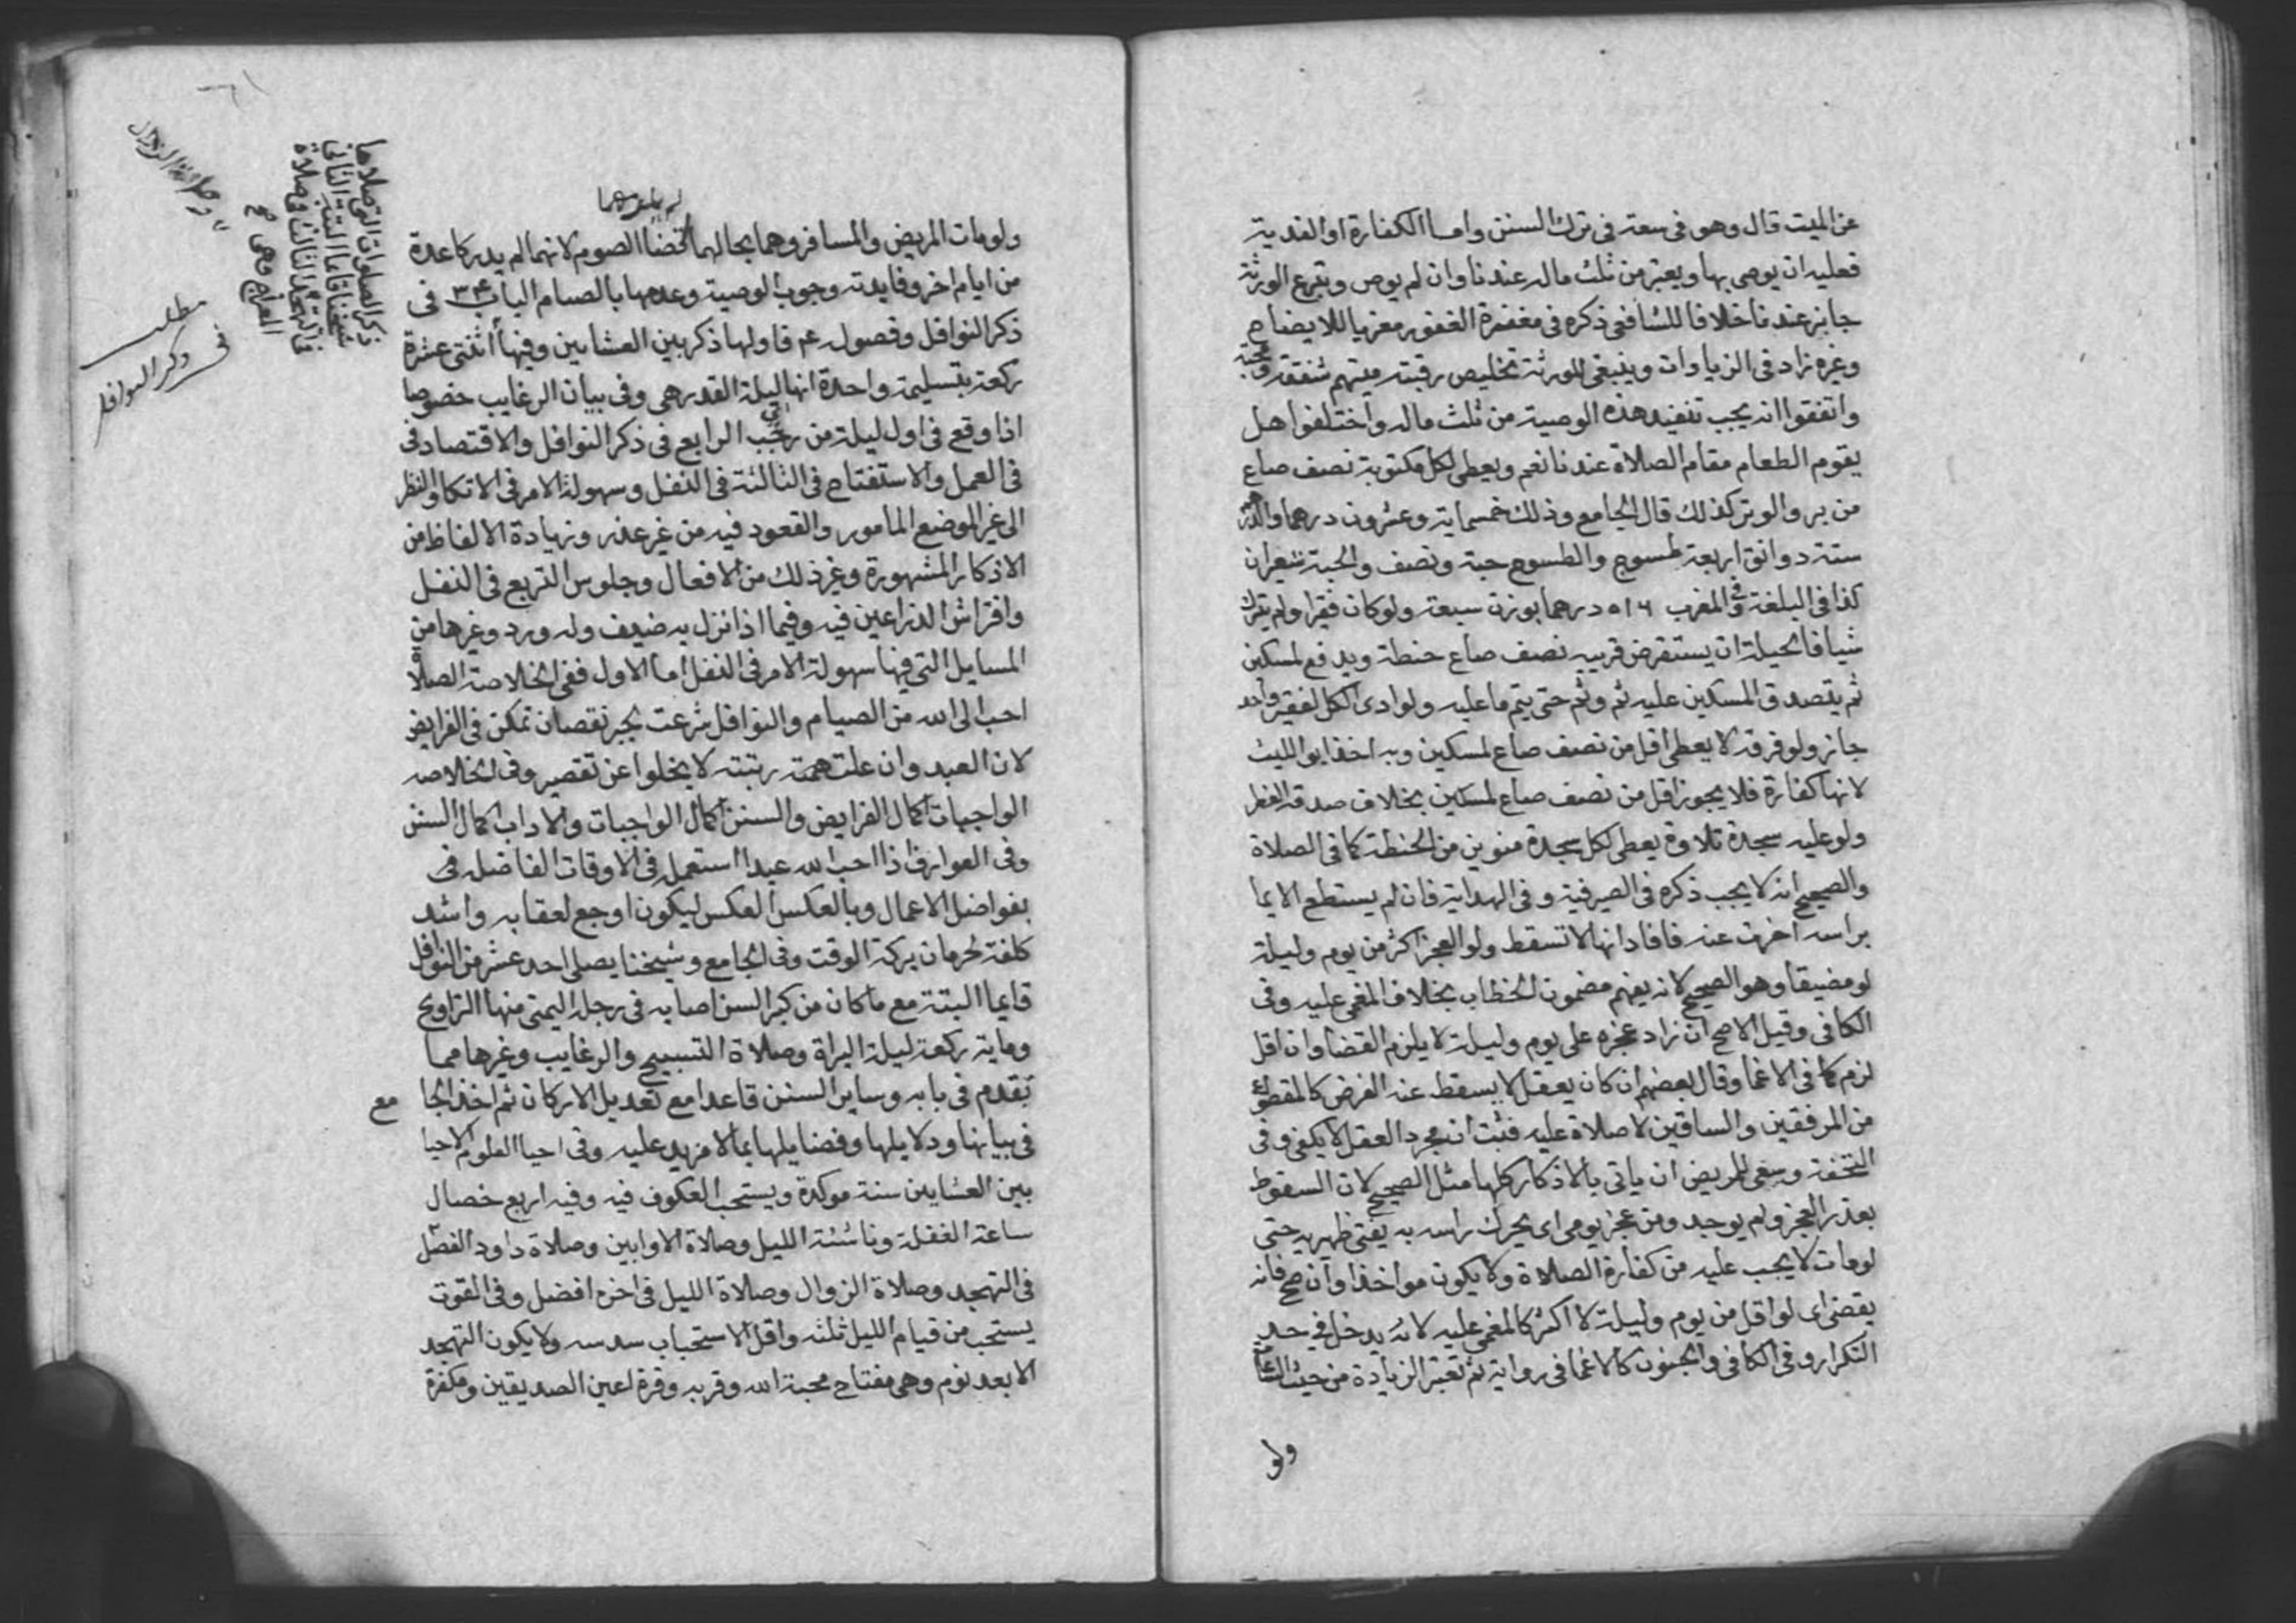 عن الميت قال وهو في سعة في ترك السنن واما الكفارة او الفدية
فعليه ان يوصي بها ويعتبر من ثلث ماله عندنا وان لم يوص وتبرع الورثة
جايز عندنا خلافا للشافعي ذكره في مغفرة الغفور معزيا للايضاح
وغيره زاد في الزيادات وينبغي للورثة تخليص رقبة ميتهم شفقة
واتفقوا انه يجب تنفيذ هذه الوصية من ثلث ماله واختلفوا هل
يقوم الطعام مقام الصلاة عندنا نعم ويعطي لكل مكتوبة نصف صاع
من بر والوتر كذلك قال الجامع وذلك خمسماية وعشرون درهما والدرهم
ستة دوانق اربعة طسوج والطسوج حبة ونصف والحبة شعيران
كذا في البلغة وفي المغرب ٥١٦ درهما بوزن سبعة ولو كان فقيرا ولم يترك
شيا فالحيلة ان يستقرض قريبه نصف صاع حنطة ويدفع لمسكين
ثم يتصدق المسكين عليه ثم وثم حتى يتم ما عليه ولو ادى الكل لفقير واحد
جاز ولو فرقه لا يعطي اقل من نصف صاع لمسكين وبه اخذ ابو الليث
لانها كفارة فلا يجوز اقل من نصف صاع لمسكين بخلاف صدقة الفطر
ولو عليه سجدة تلاوة يعطي لكل سجدة منوين من الحنطة كما في الصلاة
والصحيح انه لا يجب ذكره في الصيرفية وفي الهداية فان لم يستطع الايما
براسه اخرت عنه فافاد انها لا تسقط ولو العجز اكثر من يوم وليلة
لو مضيقا وهو الصحيح لانه يفهم مضمون الخطاب بخلاف المغمى عليه وفي
الكافي وقيل الاصح ان زاد عجزه على يوم وليلة لا يلزم القضا وان اقل
لزم كما في الاغما وقال بعضهم ان كان يعقل لا يسقط عنه الفرض كالمقطوع
من المرفقين والساقين لا صلاة عليه فثبت ان مجرد العقل لا يكفي وفي
التحفة وينبغي للمريض ان ياتي بالاذكار كلها مثل الصحيح لان السقوط
بعذر العجز ولم يوجد ومن عجز يومي اي يحرك راسه به يفتى ظهيرية حتى
لو مات لا يجب عليه من كفارة الصلاة ولا يكون مواخذا وان صح فانه
يقضي اي لو اقل من يوم وليلة لا اكثر كالمغمى عليه لانه يدخل في حد
التكرار وفي الكافي والجنون كالاغما في رواية ثم تعتبر الزيادة من حيث
ولو
ولو مات المريض والمسافر وهما بحالهما لم يلزمهما قضا الصوم لانهما لم يدركا عدة
من ايام اخر وفايدته وجوب الوصية وعدمها بالصيام الباب ٣٤ في
ذكر النوافل وفصوله ٤ فاولها ذكر بين العشايين وفيها اثنتي عشرة
ركعة بتسليمة واحدة انها ليلة القدر هي وفي بيان الرغايب خصوصا
اذا وقع في اول ليلة من رجب الرابع في ذكر النوافل والاقتصاد في
في العمل والاستفتاح في الثالثة في النفل وسهولة الامر في الاتكا والنظر
الى غير الموضع المامور والقعود فيه من غير عذر وزيادة الالفاظ من
الاذكار المشهورة وغير ذلك من الافعال وجلوس التربع في النفل
وافتراش الذراعين فيه وفيما اذا نزل به ضيف وله ورد وغيرها من
المسايل التي فيها سهولة الامر في النفل اما الاول ففي الخلاصة الصلاة
احب الى الله من الصيام والنوافل شرعت لجبر نقصان تمكن في الفرايض
لان العبد وان علت همته رتبته لا يخلوا عن تقصير وفي الخلاصه
الواجبات اكمال الفرايض والسنن اكمال الواجبات والاداب اكمال السنن
وفي العوارف اذا احب الله عبدا استعمل في الاوقات الفاضله في
بفواضل الاعمال وبالعكس العكس ليكون اوجع لعقابه واشد
كلفة لحرمان بركة الوقت وفي الجامع وشيخنا يصلي احد عشر من النوافل
قايما البتة مع ما كان من كبر السن اصابه في رجله اليمنى منها التراويح
وماية ركعة ليلة البراة وصلاة التسبيح والرغايب وغيرها مما
تقدم في بابه وساير السنن قاعدا مع تعديل الاركان ثم اخذ الجا مع
في بيانها ودلايلها وفضايلها بما لا مزيد عليه وفي احيا العلوم الاحيا
بين العشايين سنة موكدة ويستحب العكوف فيه وفيه اربع خصال
ساعة الغفلة وناشئة الليل وصلاة الاوابين وصلاة داود الفصل
في التهجد وصلاة الزوال وصلاة الليل في اخره افضل وفي القوت
يستحب من قيام الليل ثلثه واقل الاستحباب سدسه ولا يكون التهجد
الا بعد نوم وهي مفتاح محبة الله وقربه وقرة اعين الصديقين ومكفرة
ذكر الصلوات التي صلاها
شيخنا قاعا البتة الثاني
في التهجد الثالث في صلاة
المعراج وهي
وصلاة الزوال
مطلب
في ذكر النوافل